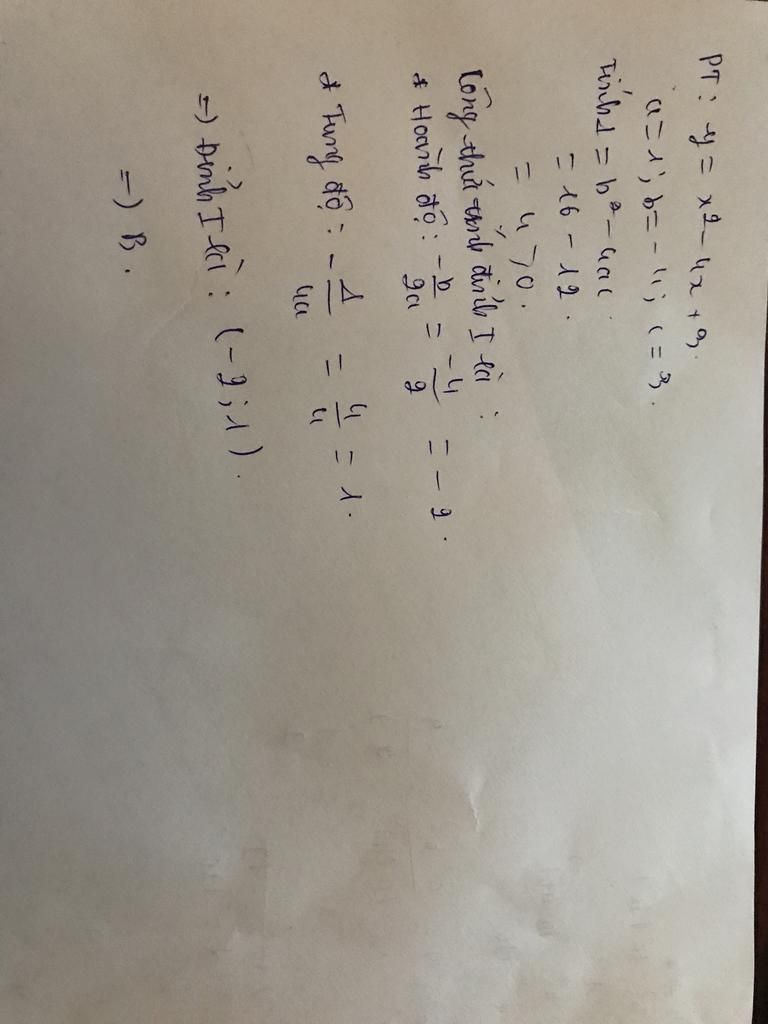 PT: y = x² - 4x + 3.
a = 1; b = - 4; c = 3.
Tính Δ = b² - 4ac.
= 16 - 12.
= 4 > 0.
Công thức tính đỉnh I là:
* Hoành độ: -b/2a = -4/2 = - 2.
* Tung độ: - Δ/4a = 4/4 = 1.
=> Đỉnh I là: (- 2; 1).
=> B.